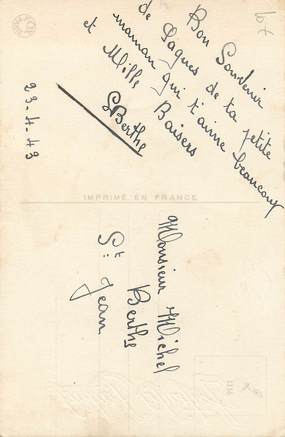 Bon Souvenir
de Pâques de ta petite
maman qui t'aime beaucoup
et Mille Baisers
Berthe
23-4-43
IMPRIMÉ EN FRANCE
Monsieur Michel
Berthe
St Jean